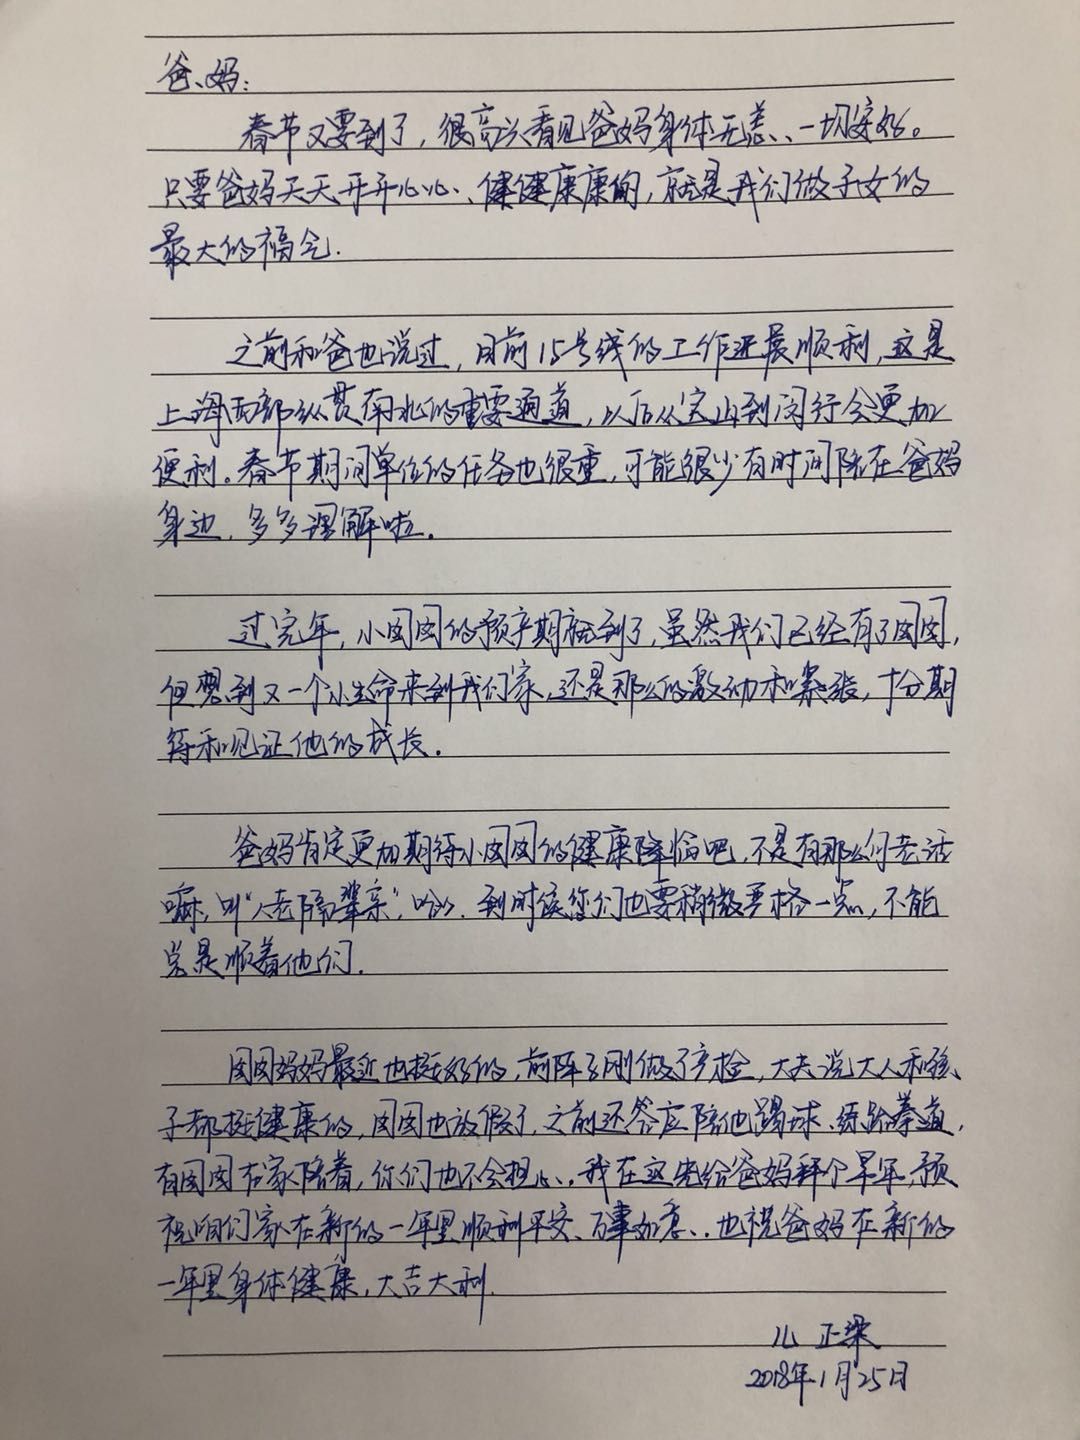 爸、妈：
春节又要到了，很高兴看见爸妈身体无恙、一切安好。
只要爸妈天天开开心心、健健康康的，就是我们做子女的
最大的福气.
之前和爸也说过，目前15号线的工作进展顺利，这是
上海西部纵贯南北的重要通道，以后从宝山到闵行会更加
便利。春节期间单位的任务也很重，可能很少有时间陪在爸妈
身边，多多理解啦。
过完年，小囡囡的预产期就到了，虽然我们已经有了囡囡，
但想到又一个小生命来到我们家，还是那么的激动和紧张，十分期
待和见证他的成长。
爸妈肯定更加期待小囡囡的健康降临吧，不是有那么句老话
嘛，叫“人老隔辈亲”，哈，到时候您们也要稍微严格一点，不能
总是顺着他们.
囡囡妈妈最近也挺好的，前阵子刚做了产检，大夫说大人和孩
子都挺健康的，囡囡也放假了，之前还答应陪他踢球、练跆拳道，
有囡囡在家陪着，你们也不会担心，我在这先给爸妈拜个早年，预
祝咱们家在新的一年里顺利平安、万事如意、也祝爸妈在新的
一年里身体健康，大吉大利.
儿 正梁
2018年1月25日